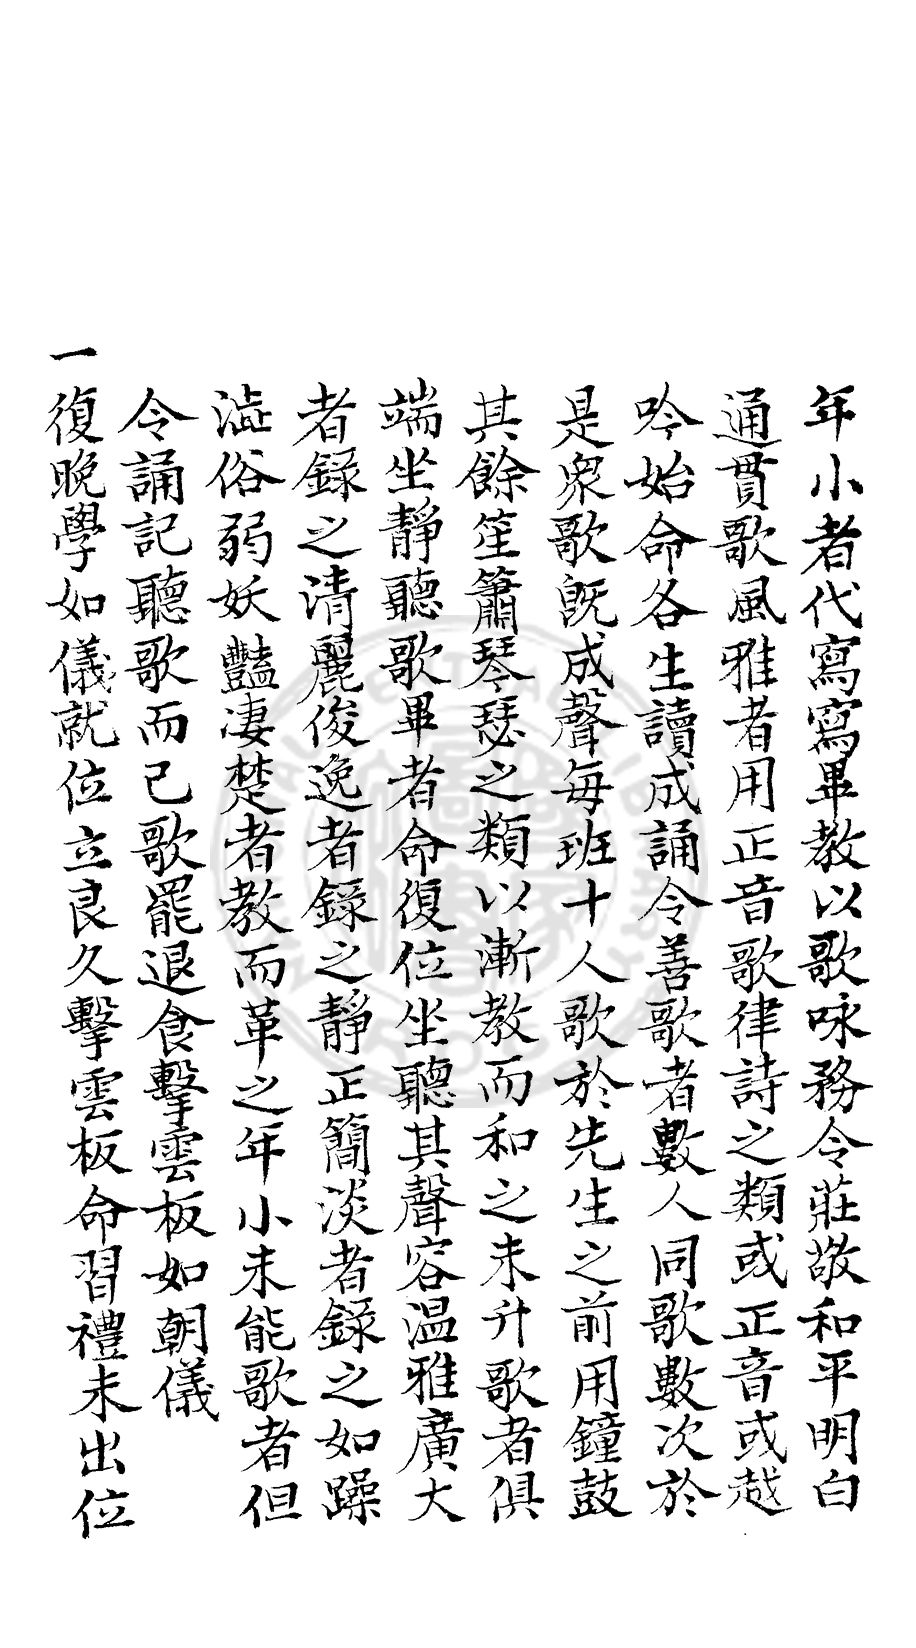 年小者代寫寫畢教以歌咏務令莊敬和平明白
通貫歌風雅者用正音歌律詩之類或正音或越
吟始命各生讀成誦令善歌者數人同歌數次於
是衆歌旣成聲每班十人歌於先生之前用鐘鼓
其餘笙簫琴瑟之類以漸教而和之未升歌者俱
端坐靜聽歌畢者命復位坐聽其聲容温雅廣大
者錄之清麗俊逸者錄之靜正簡淡者錄之如躁
澁俗弱妖豔淒楚者教而革之年小未能歌者但
令誦記聽歌而已歌罷退食擊雲板如朝儀
一復晚學如儀就位立良久擊雲板命習禮未出位